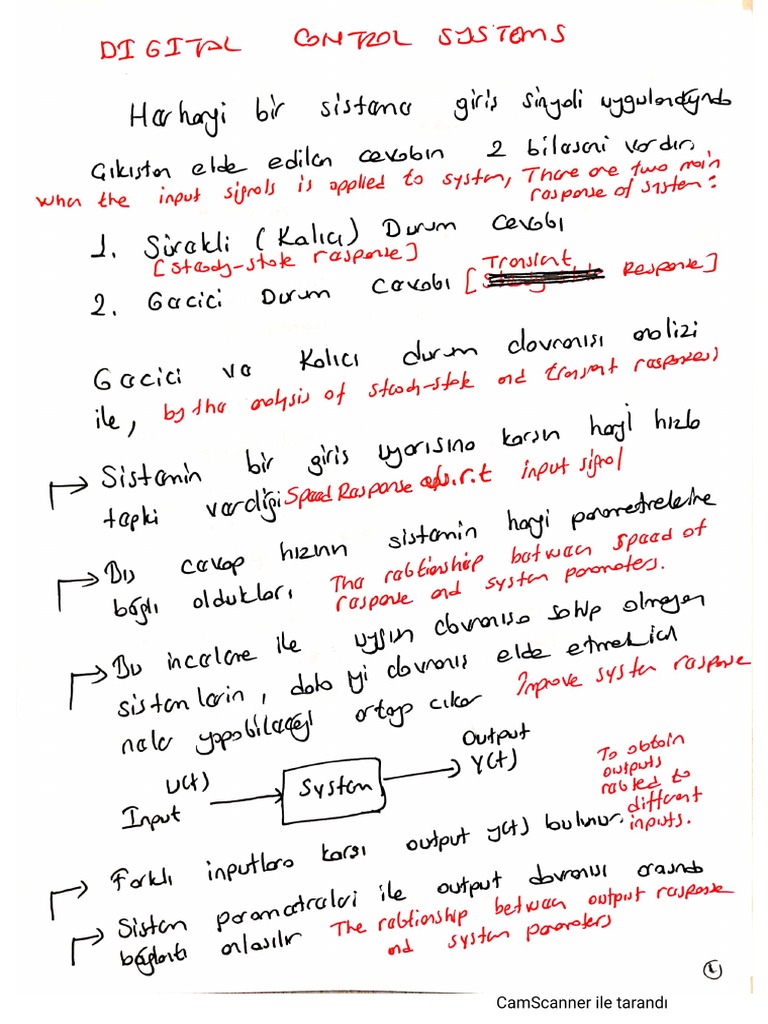 DIGITAL CONTROL SYSTEMS
Herhangi bir sisteme giriş sinyali uygulandığında
çıkıştan elde edilen cevabın 2 bileşeni vardır.
when the input signals is applied to system, There are two main
response of system:
1. Sürekli (Kalıcı) Durum Cevabı
[steady-state response]
2. Gecici Durum Cevabı [Transient Response]
Gecici ve Kalıcı durum davranışı analizi
ile, by the analysis of steady-state and transient responses;
→ Sistemin bir giriş uyarısına karşın hangi hızla
tepki verdiği Speed Response w.r.t input signal
→ Bu cevap hızının sistemin hangi parametrelerine
bağlı oldukları The relationship between speed of
response and system parameters.
→ Bu inceleme ile uygun davranışa sahip olmayan
sistemlerin, daha iyi davranış elde etmek için
neler yapabileceği ortaya çıkar Improve system response
U(t)
Input
System
Output
Y(t)
To obtain
outputs
related to
different
inputs.
→ Farklı inputlara karşı output y(t) bulunur.
→ Sistem parametreleri ile output davranışı arasında
bağlantı anlaşılır The relationship between output response
and system parameters
1
CamScanner ile tarandı